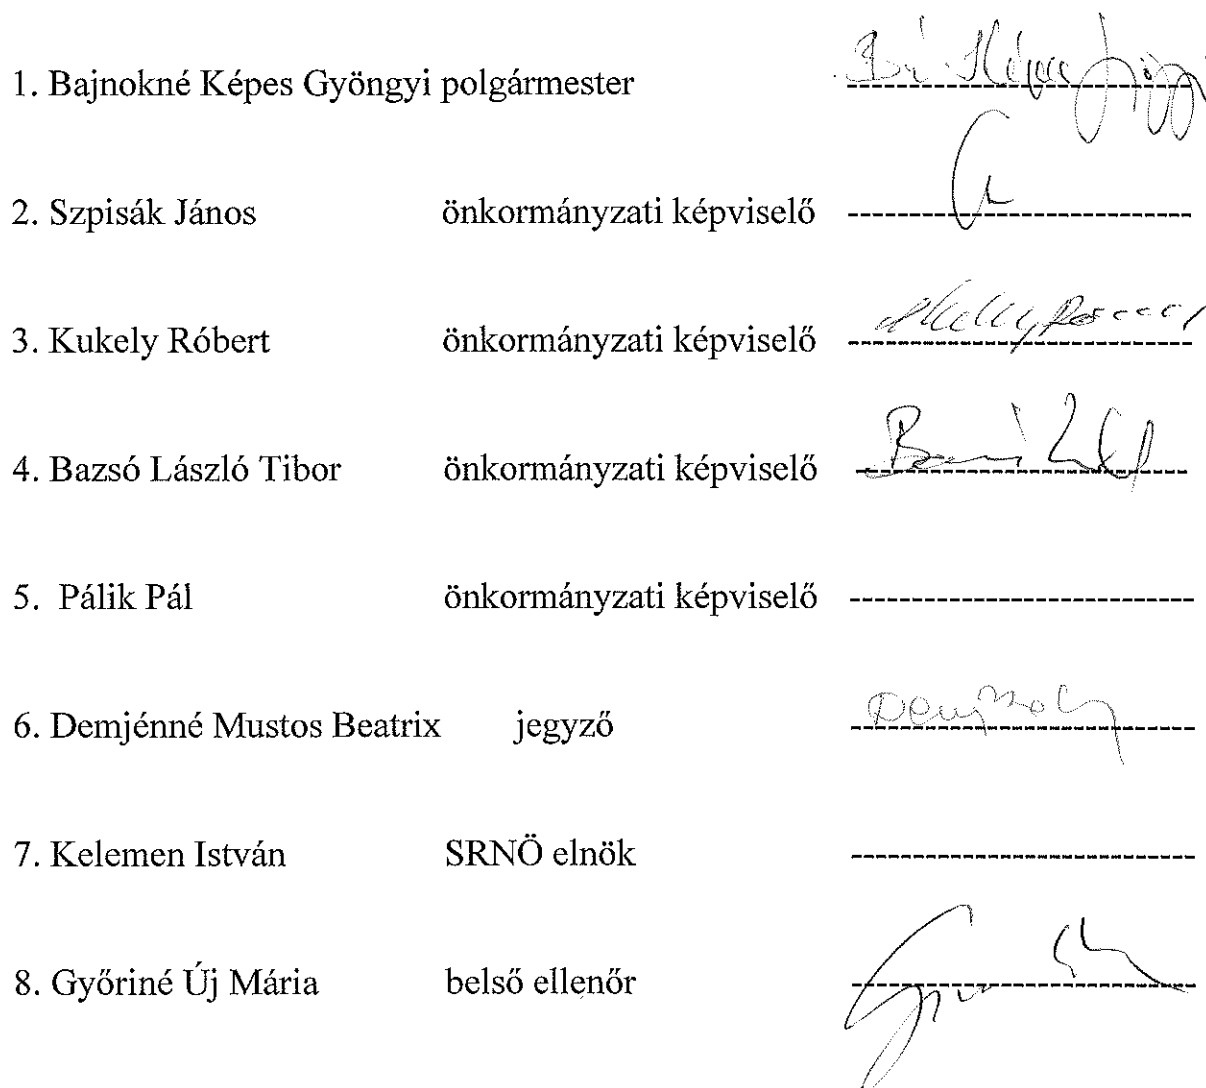 1. Bajnokné Képes Gyöngyi polgármester
2. Szpisák János önkormányzati képviselő
3. Kukely Róbert önkormányzati képviselő
4. Bazsó László Tibor önkormányzati képviselő
5. Pálik Pál önkormányzati képviselő
6. Demjénné Mustos Beatrix jegyző
7. Kelemen István SRNÖ elnök
8. Győriné Új Mária belső ellenőr